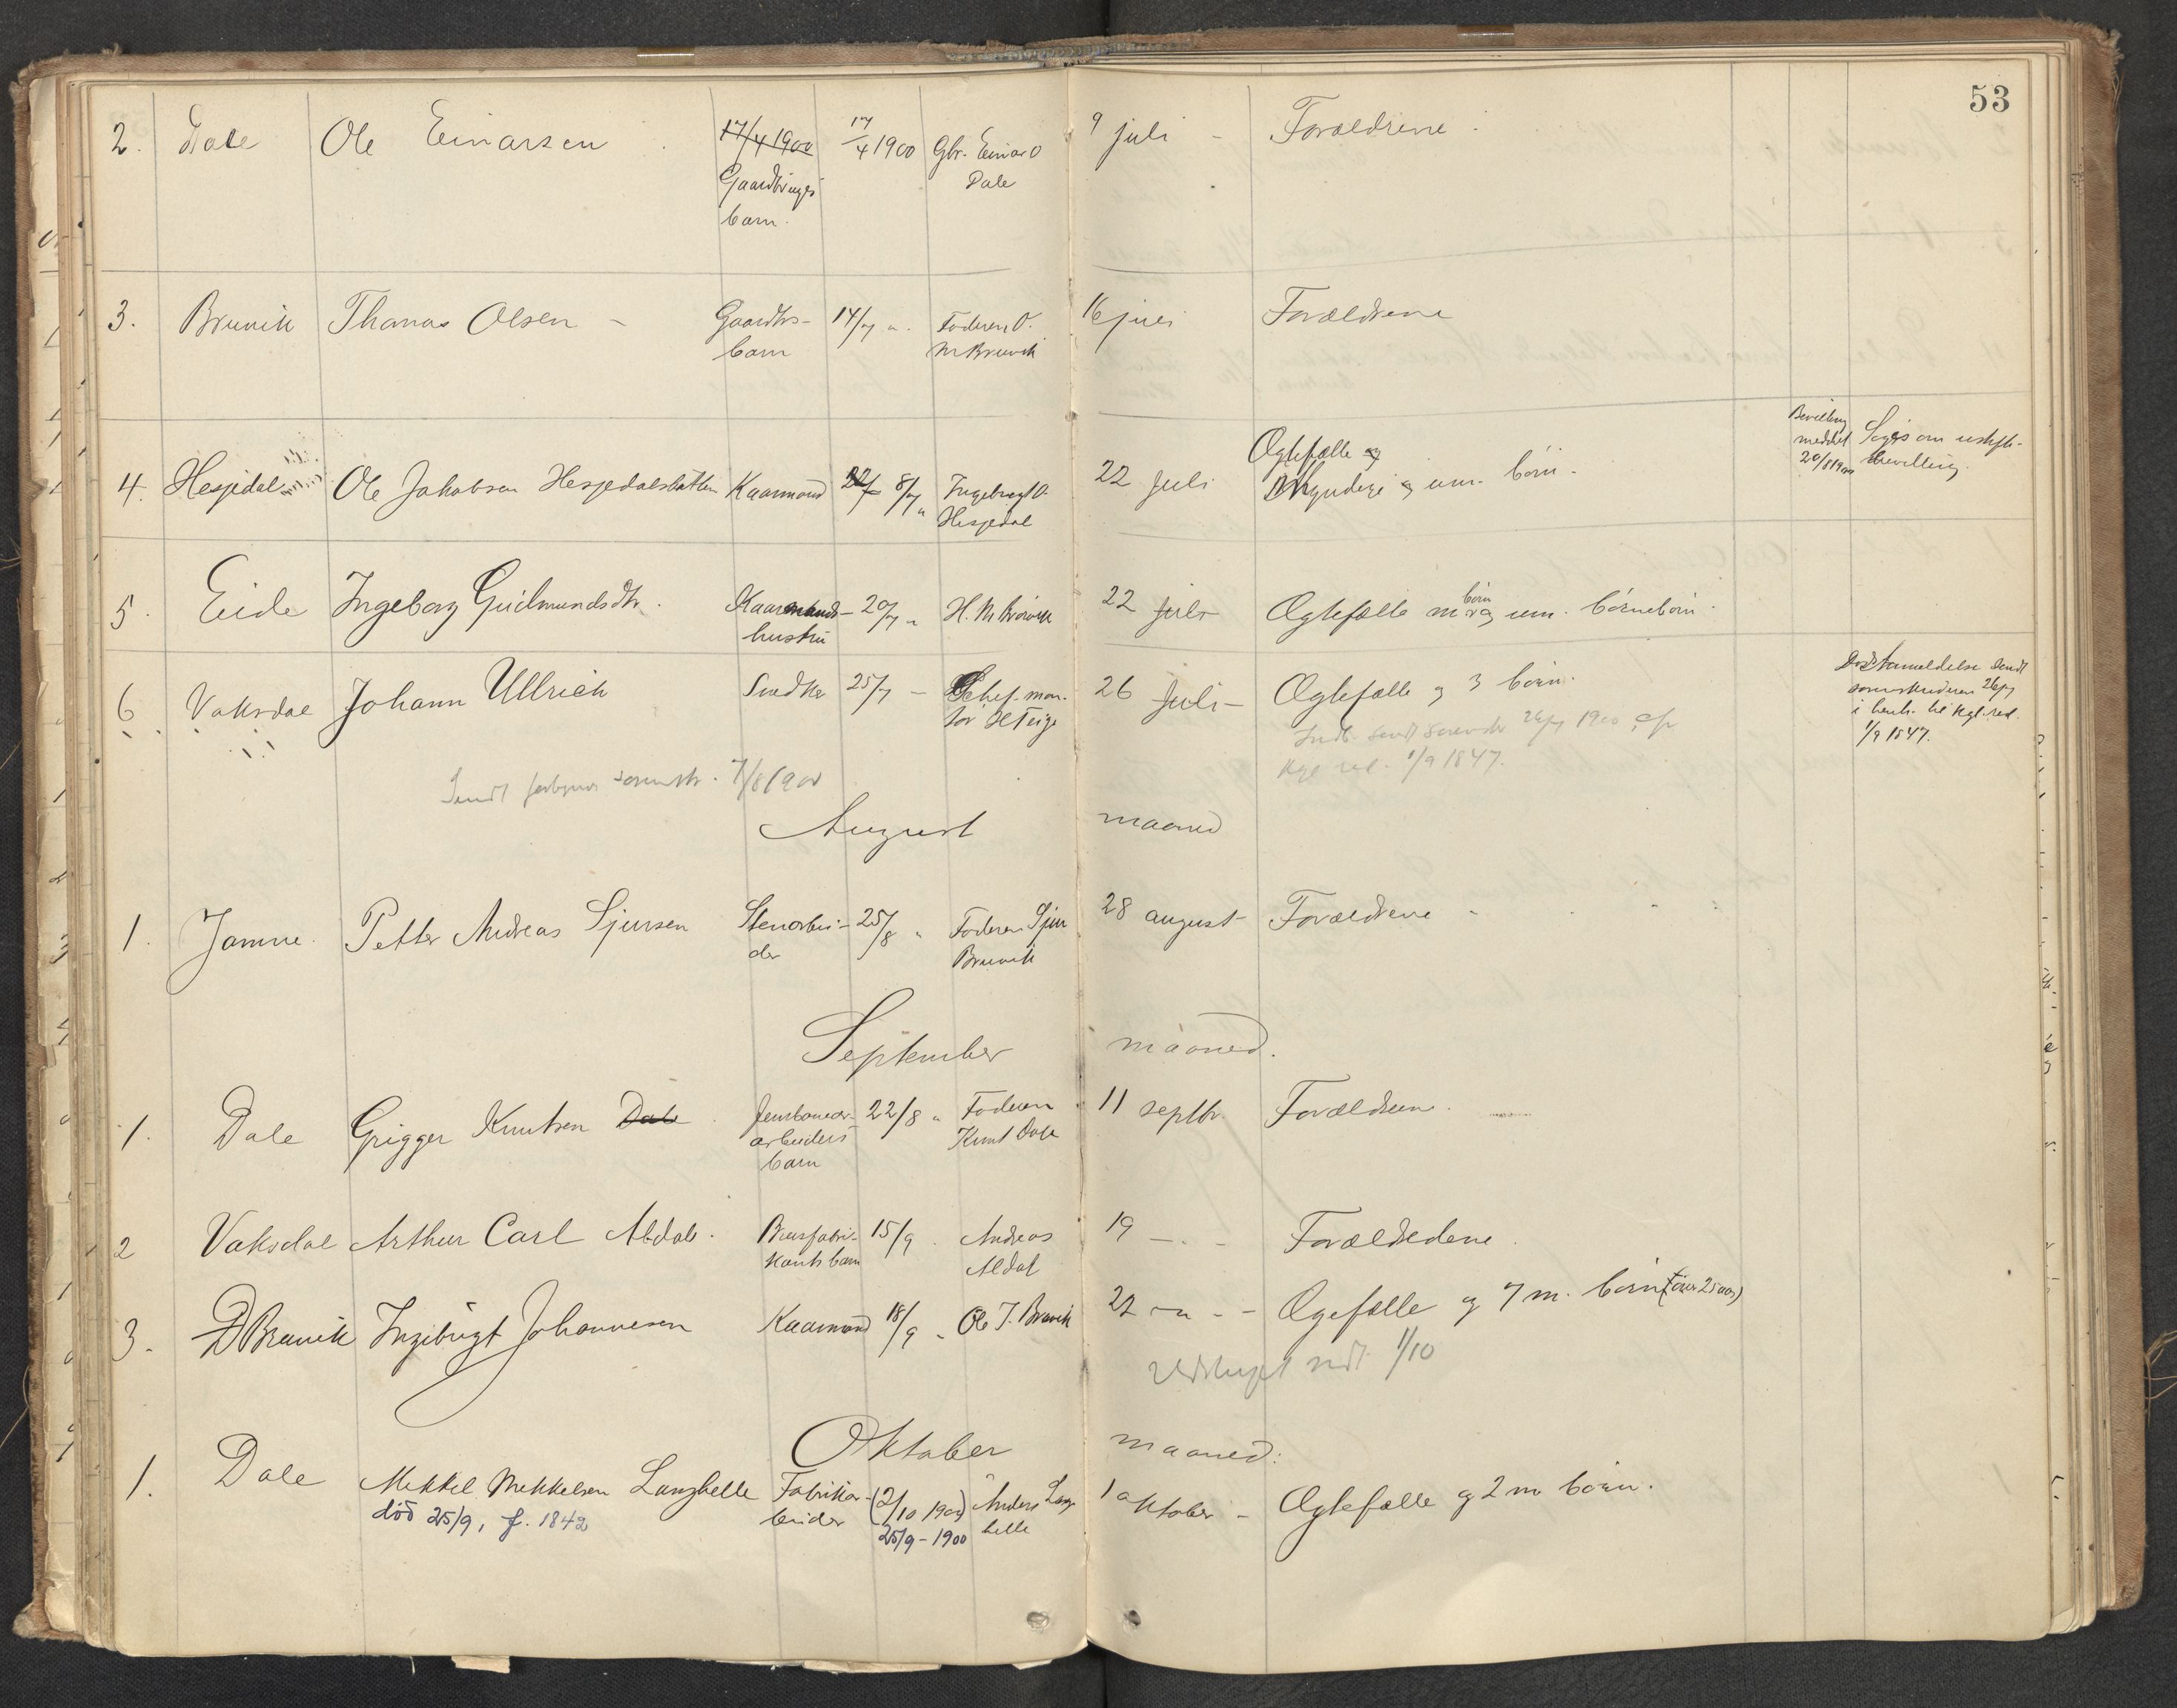 53
2. Dale Ole Einarsen 17/4 1900 17/4 1900 Gbr. Einar O 9 juli - Forældrene
Gaardbrugs Dale
barn.
3. Bruvik Thomas Olsen - Gaardbrs- 14/7 " Faderen O. 16 juli Forældrene
barn M Bruvik
Bevilling
meddelt Søges om uskift-
20/8 1900 bevilling.
Ægtefælle og
4. Hesjedal Ole Jakobsen Hesjedalslåtten Kaarmand 8/7 " Ingebrigt O. 22 Juli og um. børn -
Hesjedal
børn
5. Eide Ingeborg Gudmundsdtr. Kaarmands- 20/7 " H. M. Bruvik 22 juli Ægtefælle m og um. børnebørn.
hustru
6 Vaksdal Johann Ullrich Snedker 25/7 - 26 Juli - Ægtefælle og 3 børn.
H Teige
Dødsanmeldelse sendt
sorenskriveren 26/7
i henh. til kgl. res.
1/9 1847.
Indb. sendt sorenskr 26/7 1900, efr
kgl res. 1/9 1847.
Sendt sorenskr. 7/8 1900
August maaned
1. Jamne. Petter Andreas Sjursen Stenarbei- 25/8 " Faderen Sjur 28 august - Forældrene -
der Bruvik
September maaned.
1. Dale Grigger Knutsen Dale Jernbanear- 22/8 " Faderen 11 septbr. Forældrene.
arbeiders Knut Dale
barn
2 Vaksdal Arthur Carl Aldal. Brusfabri- 15/9 . Andreas 19 - . - Forældredene.
kants barn Aldal
3. D Bruvik Ingebrigt Johannesen Kaarmand 18/9 " Ole J. Bruvik 22 - " - - Ægefælle og 7 m. børn (over 25 aar)
1/10
Oktober maaned.
1. Dale Mikkel Mikkelsen Langhelle Fabrikar- (2/10 1900) Anders Lang 1 oktober - Ægtefælle og 2 m børn.
død 25/9, f. 1842 beider 25/9 - 1900 helle